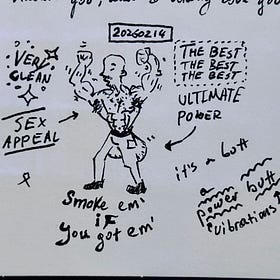 20260214
VERY
CLEAN
THE BEST
THE BEST
THE BEST
ULTIMATE
POWER
SEX
APPEAL
it's a butt
a
power butt
vibrations
Smoke em'
iF
You got em'